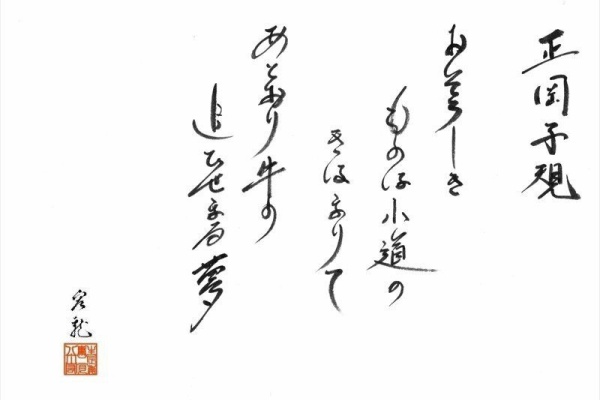 正岡子規
おそろしき
ものは小道の
きはまりて
あとより牛の
追ひせまる夢